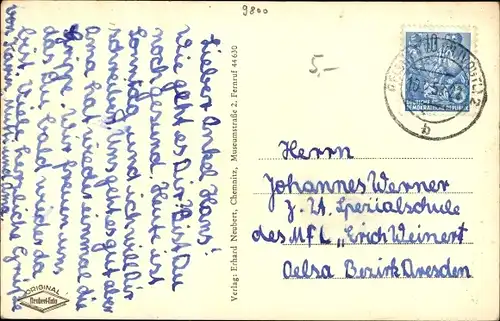 9800
5,-
Lieber Onkel Hans!
Wie geht es Dir? Bist Du
noch gesund. Heute ist
Sonntag und ich will Dir
schreiben. Uns geht es gut aber
Oma hat wieder einmal die
Grippe. Wir freuen uns
das Du bald wieder da
bist. Viele herzliche Grüße
von
und Oma.
Verlag: Erhard Neubert, Chemnitz, Museumstraße 2, Fernruf 44630
ORIGINAL
Neubert-Foto
DEUTSCHE
DEMOKRATISCHE REPUBLIK
10
b
Herrn
Johannes Werner
z. Zt. Spezialschule
des MfL „Erich Weinert"
Oelsa Bezirk Dresden